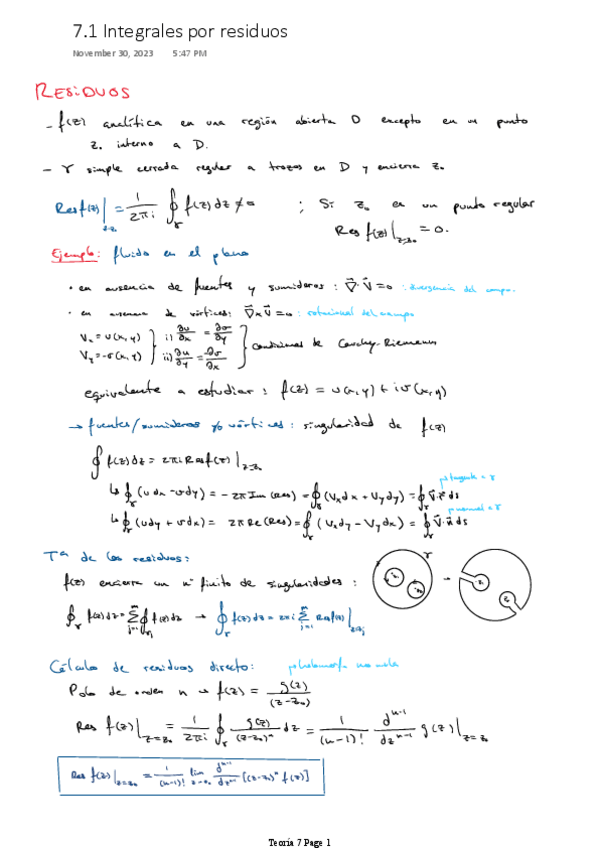 7.1 Integrales por residuos
November 30, 2023 5:47 PM
RESIDUOS
- f(z) analítica en una región abierta D excepto en un punto
z₀ interno a D.
- γ simple cerrada regular a trozos en D y encierra z₀
Res f(z)|_{z=z₀} = 1/(2πi) ∮_γ f(z) dz ≠ 0 ; Si z₀ es un punto regular
Res f(z)|_{z=z₀} = 0.
Ejemplo: fluido en el plano
• en ausencia de fuentes y sumideros : ∇·V = 0 : divergencia del campo.
• en ausencia de vórtices: ∇×V = 0 : rotacional del campo
Vx = u(x,y) i) ∂u/∂x = ∂v/∂y
Vy = -v(x,y) ii) ∂u/∂y = -∂v/∂x
condiciones de Cauchy-Riemann
equivalente a estudiar : f(z) = u(x,y) + iv(x,y)
→ fuentes/sumideros y/o vórtices : singularidad de f(z)
∮ f(z) dz = 2πi Res f(z)|_{z=z₀}
tangente a γ
↳ ∮_γ (u dx - v dy) = -2π Im(Res) = ∮_γ (Vx dx + Vy dy) = ∮_γ V·t ds
normal a γ
↳ ∮_γ (u dy + v dx) = 2π Re(Res) = ∮_γ (Vx dy - Vy dx) = ∮_γ V·n ds
Tª de los residuos:
f(z) encierra un nº finito de singularidades :
γ
z₁ z₂ → z₁ z₂
∮_γ f(z) dz = Σ_{j=1}^m ∮_{γj} f(z) dz → ∮_γ f(z) dz = 2πi Σ_{j=1}^m Res f(z)|_{z=zj}
Cálculo de residuos directo: holomorfa no nula
Polo de orden n → f(z) = g(z)/(z-z₀)ⁿ
Res f(z)|_{z=z₀} = 1/(2πi) ∮_γ g(z)/(z-z₀)ⁿ dz = 1/(n-1)! d^{n-1}/dz^{n-1} g(z)|_{z=z₀}
Res f(z)|_{z=z₀} = 1/(n-1)! lim_{z→z₀} d^{n-1}/dz^{n-1} [(z-z₀)ⁿ f(z)]
Teoría 7 Page 1